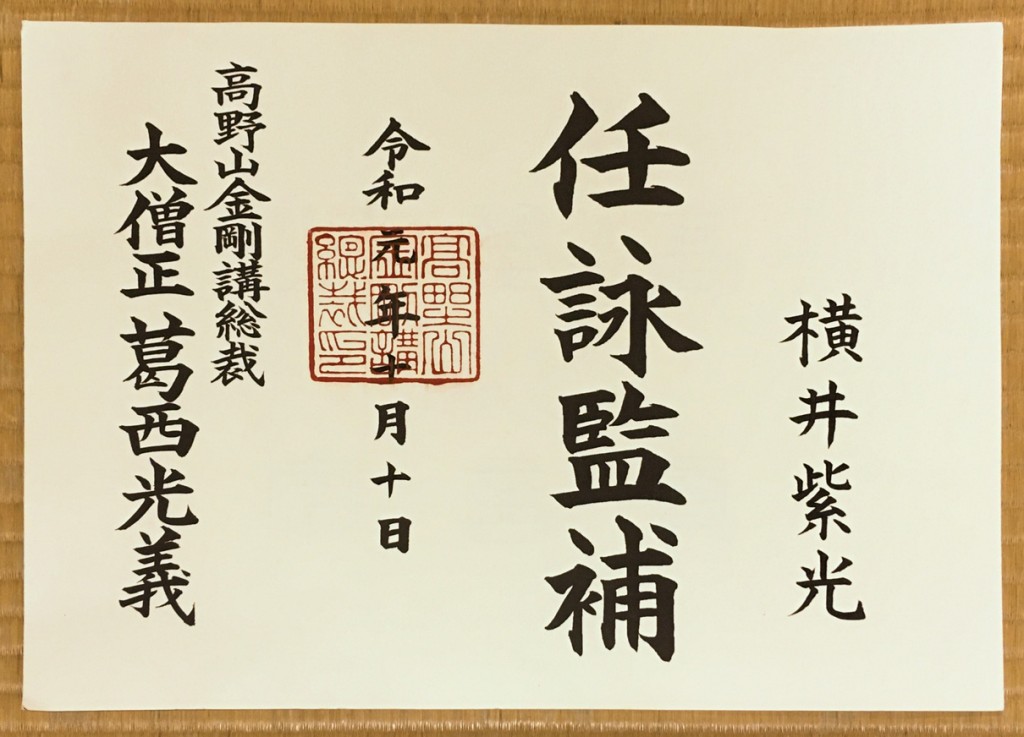 横井紫光
任詠監補
令和元年十月十日
高野山金剛講総裁
大僧正葛西光義
高野山
金剛講
總裁印